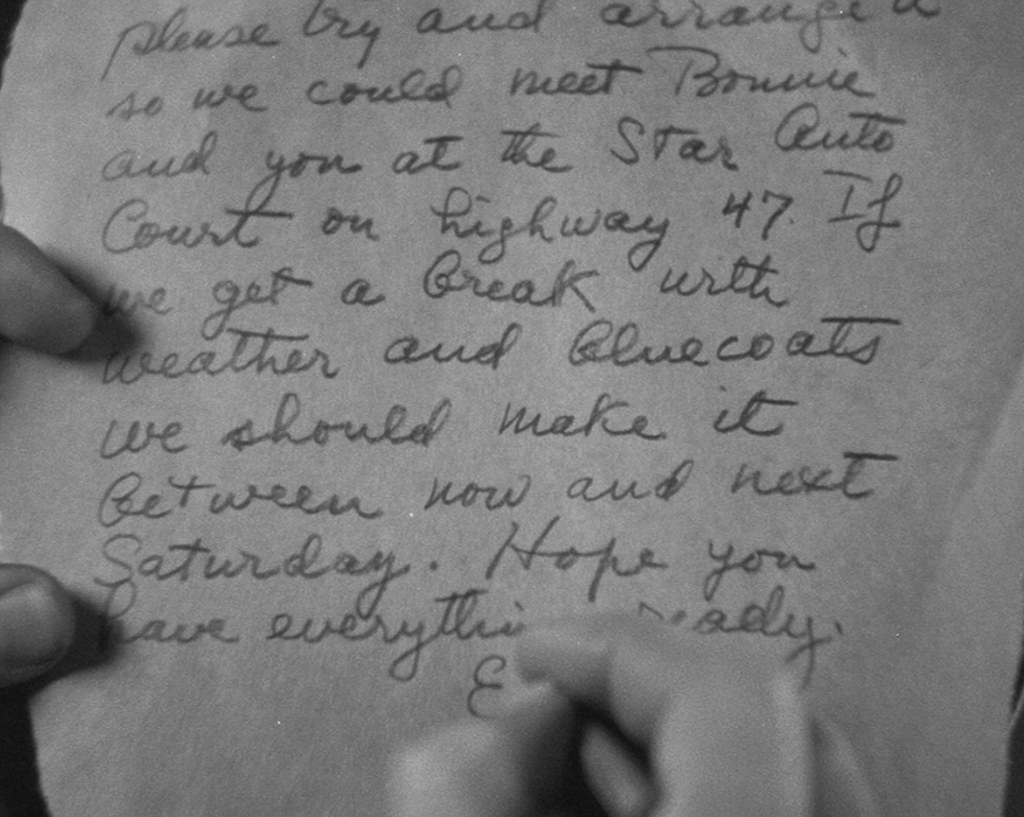 please try and arrange
so we could meet Bonnie
and you at the Star Auto
Court on highway 47. If
we get a break with
weather and bluecoats
we should make it
between now and next
Saturday. Hope you
have everything ready.
E